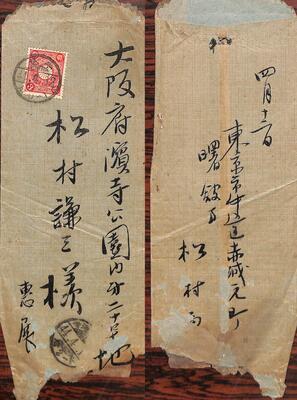 大阪府濱寺公園内第二十号地
松村謙三様
恵展
四月十二日
東京市牛込区赤城元町
曙館方
松村